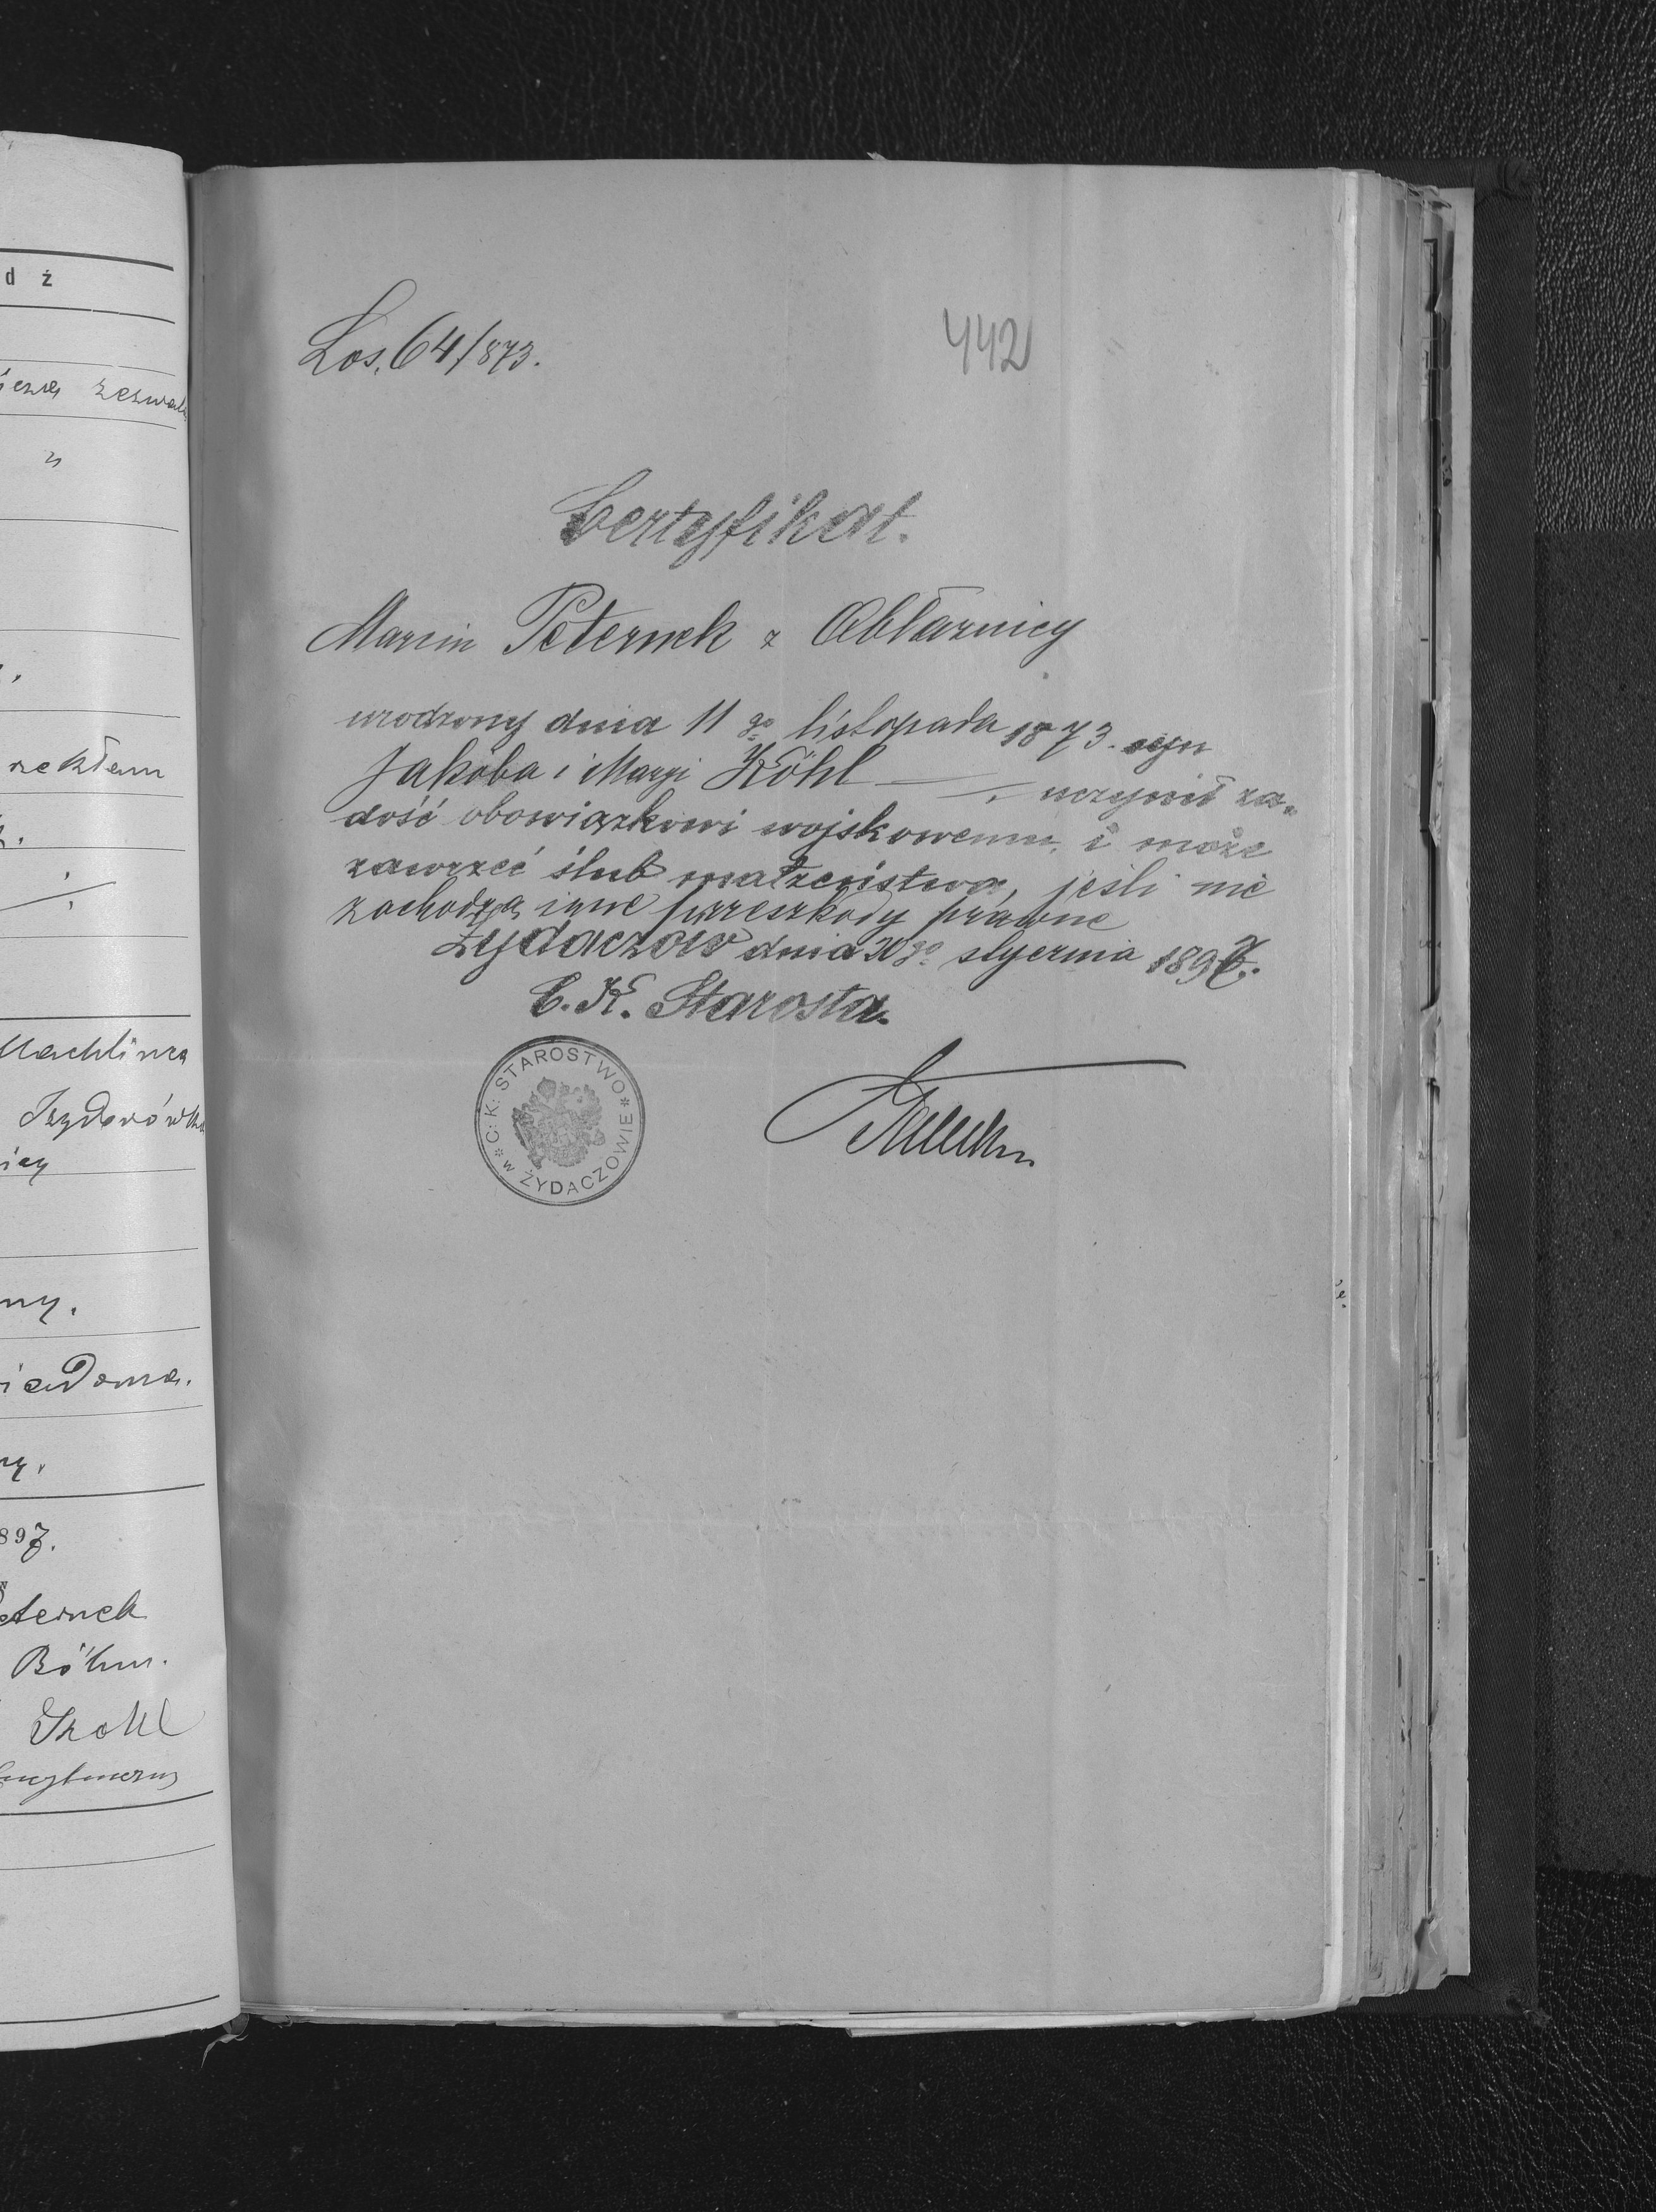 d ż
zezwala
"
rzekłem
Machlinca
Izydorówka
ny.
iadoma.
ny.
897.
eternek
Böhm.
Los. 64/873.
442
Certyfikat.
Marcin Peternek z Obłaźnicy
urodzony dnia 11 go listopada 1873. syn
Jakóba i Maryi Köhl —, uczynił za-
dość obowiązkowi wojskowemu, i może
zawrzeć ślub małżeństwa, jeśli nie
zachodzą inne przeszkody prawne
Żydaczów dnia 20 go stycznia 1897.
C. K. Starosta.
* C: K: STAROSTWO * w ŻYDACZOWIE